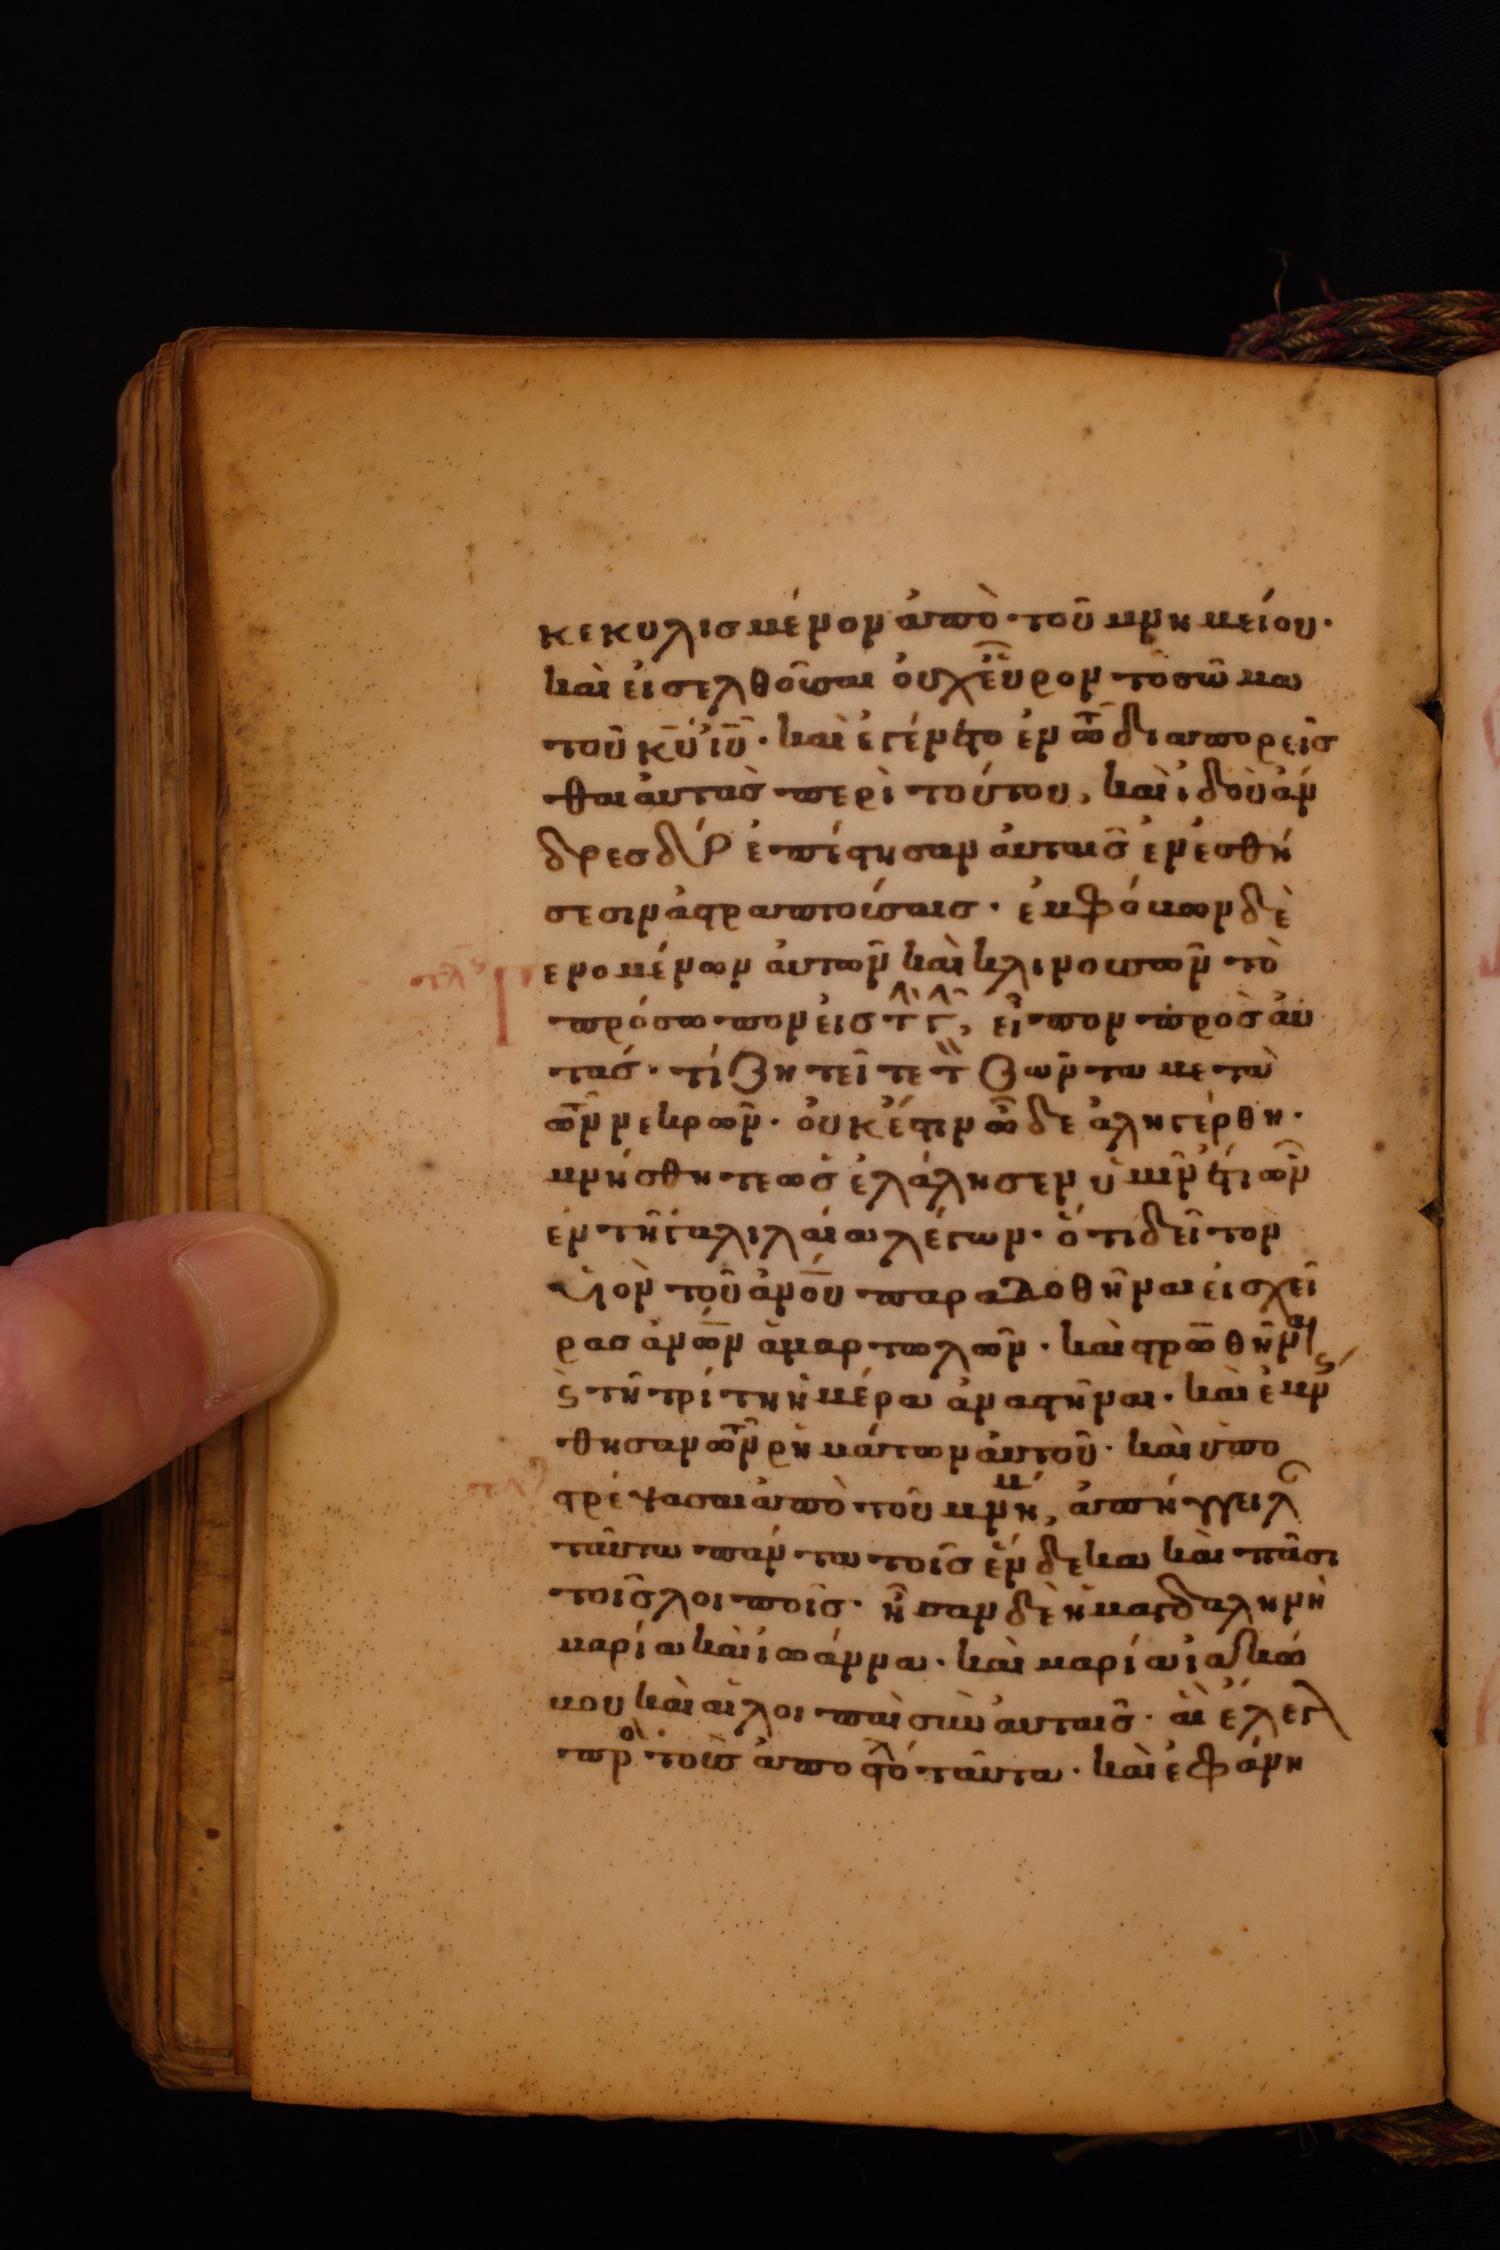 κεκυλισμένον ἀπὸ τοῦ μνημείου·
καὶ εἰσελθοῦσαι οὐχ εὗρον τὸ σῶμα
τοῦ κ̅υ̅ ἰ̅υ̅· καὶ ἐγένετο ἐν τῶ διαπορεῖσ
θαι αὐτὰσ περὶ τούτου, καὶ ἰδοὺ ἄν
δρεσ δύο ἐπέστησαν αὐταῖσ ἐν ἐσθή
σεσιν ἀστραπτούσαισ· ἐμφόβων δὲ
γενομένων αὐτῶν καὶ κλινουσῶν τὸ
πρόσωπον εἰσ τ γ, εἶπον πρὸσ αὐ
τάσ· τί ζητεῖτε τ ζῶντα μετὰ
τῶν νεκρῶν· οὐκ ἔστιν ὧδε ἀλ ηγέρθη·
μνήσθητε ὡσ ἐλάλησεν ὑμῖν ἔτι ὢν
ἐν τῆ γαλιλαία λέγων· ὅτι δεῖ τὸν
υἱὸν τοῦ ἀν̅ου παραδοθῆναι εἰσ χεῖ
ρασ ἀν̅ων ἁμαρτωλῶν· καὶ στρ̅ωθῆναι
ϛ τῆ τρίτη ἡμέρα ἀναστῆναι· καὶ ἐμν
θησαν τῶν ρημάτων αὐτοῦ· καὶ ὑπο
στρέψασαι ἀπὸ τοῦ μνημ, ἀπήγγειλ
ταῦτα πάντα τοῖσ ἕνδεκα καὶ πᾶσι
τοῖσ λοιποῖσ· ἦσαν δὲ ἡ μαγδαληνὴ
μαρία καὶ ἰωάννα· καὶ μαρία ἰακώ
βου καὶ αἱ λοιπαὶ σὺν αὐταῖσ· αἳ ἔλεγ
πρ τοὺσ ἀποστόλ ταῦτα· καὶ ἐφάνη